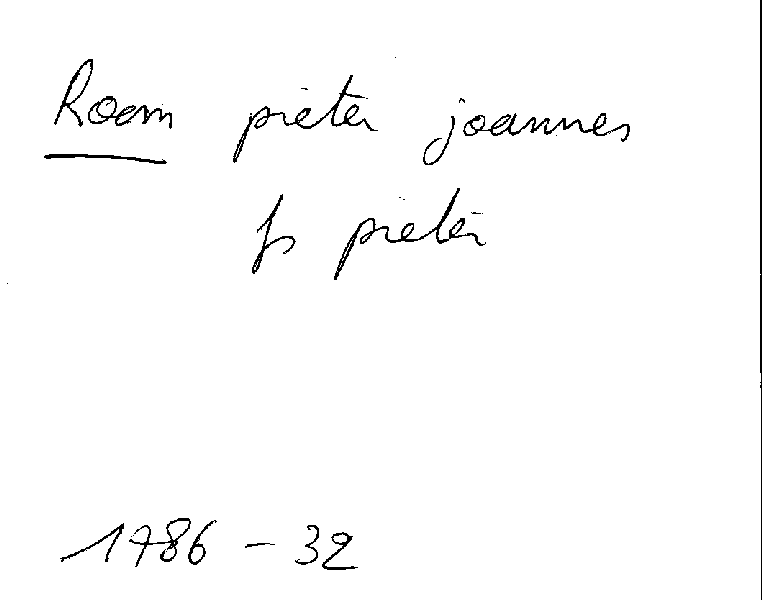 Room pieter joannes
fs pieter
1786 - 32